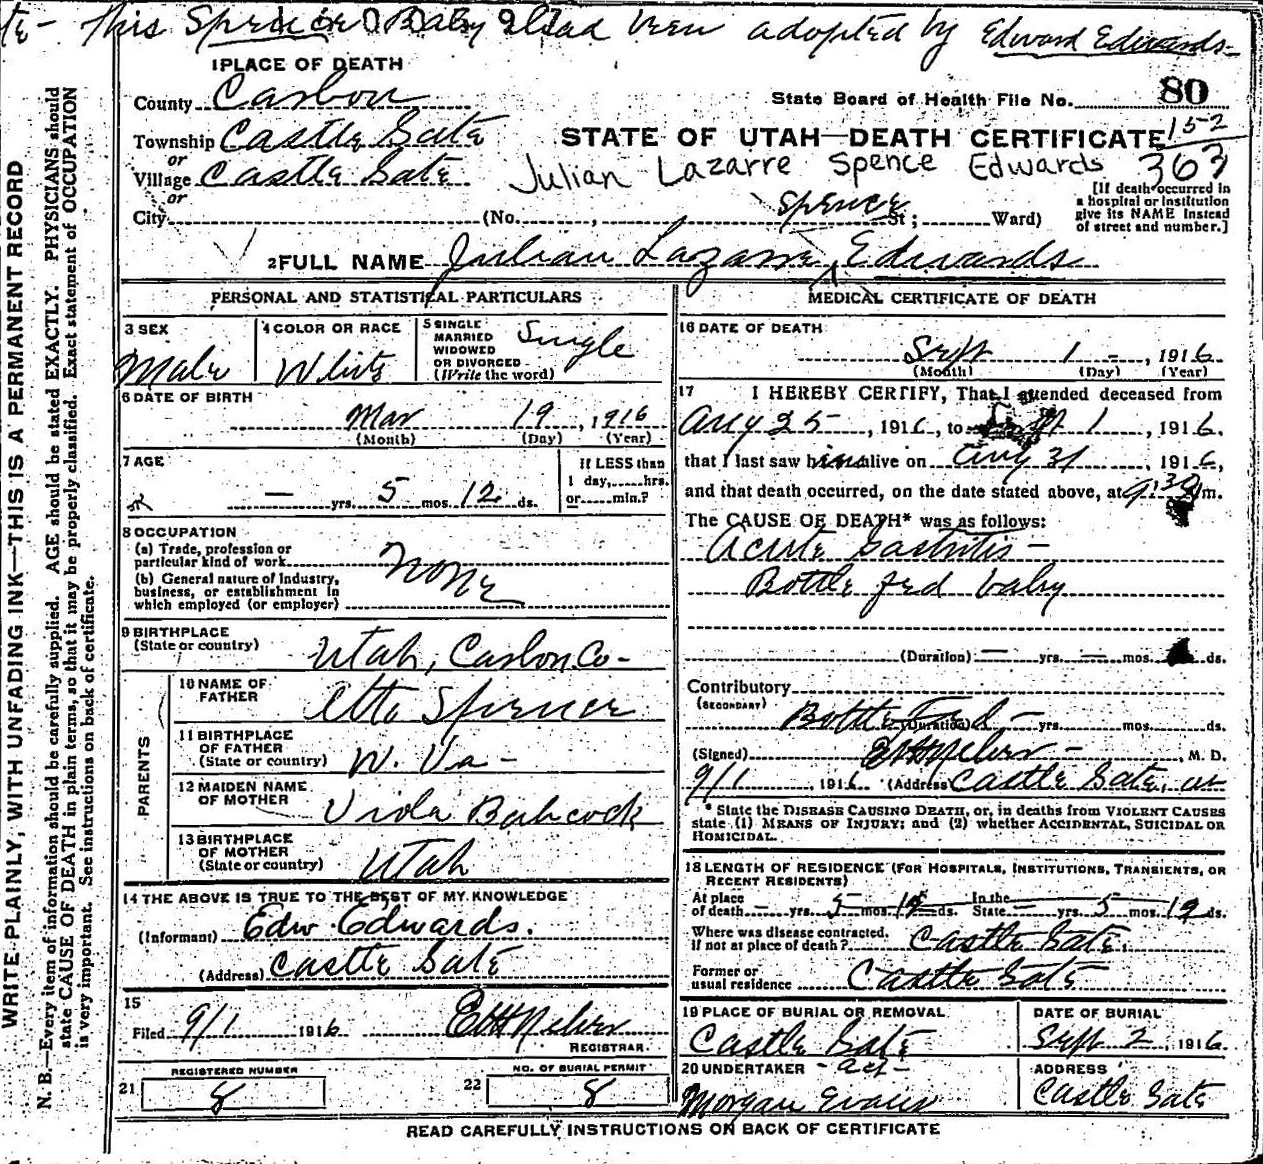 te - This Spencer Baby had been adopted by Edward Edwards
1 PLACE OF DEATH
County Carbon
State Board of Health File No. 80
Township Castle Gate
STATE OF UTAH—DEATH CERTIFICATE 152
or
Village Castle Gate
Julian Lazarre Spence Edwards 363
or
City (No. , Spence St; Ward)
[If death occurred in
a hospital or institution
give its NAME instead
of street and number.]
2 FULL NAME Julian Lazarre Edwards
PERSONAL AND STATISTICAL PARTICULARS
3 SEX
Male
4 COLOR OR RACE
White
5 SINGLE
MARRIED
WIDOWED
OR DIVORCED
(Write the word)
Single
6 DATE OF BIRTH
Mar 19, 1916
(Month) (Day) (Year)
7 AGE
— yrs. 5 mos. 12 ds.
If LESS than
1 day, hrs.
or min.?
8 OCCUPATION
(a) Trade, profession or
particular kind of work
(b) General nature of industry,
business, or establishment in
which employed (or employer)
None
9 BIRTHPLACE
(State or country)
Utah, Carbon Co-
PARENTS
10 NAME OF
FATHER
Otto Spencer
11 BIRTHPLACE
OF FATHER
(State or country)
W. Va -
12 MAIDEN NAME
OF MOTHER
Viola Babcock
13 BIRTHPLACE
OF MOTHER
(State or country)
Utah
14 THE ABOVE IS TRUE TO THE BEST OF MY KNOWLEDGE
(Informant) Edw. Edwards.
(Address) Castle Gate
15
Filed 9/1 1916
REGISTRAR.
REGISTERED NUMBER
21 8
NO. OF BURIAL PERMIT
22 8
MEDICAL CERTIFICATE OF DEATH
16 DATE OF DEATH
Sept 1 -, 1916
(Month) (Day) (Year)
17 I HEREBY CERTIFY, That I attended deceased from
Aug 25, 1916, to 1, 1916,
that I last saw him alive on Aug 31, 1916,
and that death occurred, on the date stated above, at 9:30 m.
The CAUSE OF DEATH* was as follows:
Acute Gastritis -
Bottle fed baby
(Duration) — yrs. — mos. ds.
Contributory
(SECONDARY)
Bottle Fed - (Duration) yrs. mos. ds.
(Signed) , M. D.
9/1, 1916 (Address) Castle Gate,
* State the DISEASE CAUSING DEATH, or, in deaths from VIOLENT CAUSES
state (1) MEANS OF INJURY; and (2) whether ACCIDENTAL, SUICIDAL OR
HOMICIDAL.
18 LENGTH OF RESIDENCE (FOR HOSPITALS, INSTITUTIONS, TRANSIENTS, OR
RECENT RESIDENTS)
At place In the
of death - yrs. 5 mos. ds. State - yrs. 5 mos. 12 ds.
Where was disease contracted.
if not at place of death? Castle Gate.
Former or
usual residence Castle Gate
19 PLACE OF BURIAL OR REMOVAL
Castle Gate
DATE OF BURIAL
Sept 2, 1916
20 UNDERTAKER - act -
Morgan Evans
ADDRESS
Castle Gate
READ CAREFULLY INSTRUCTIONS ON BACK OF CERTIFICATE
WRITE PLAINLY, WITH UNFADING INK—THIS IS A PERMANENT RECORD
N. B.—Every item of information should be carefully supplied. AGE should be stated EXACTLY. PHYSICIANS should
state CAUSE OF DEATH in plain terms, so that it may be properly classified. Exact statement of OCCUPATION
is very important. See instructions on back of certificate.